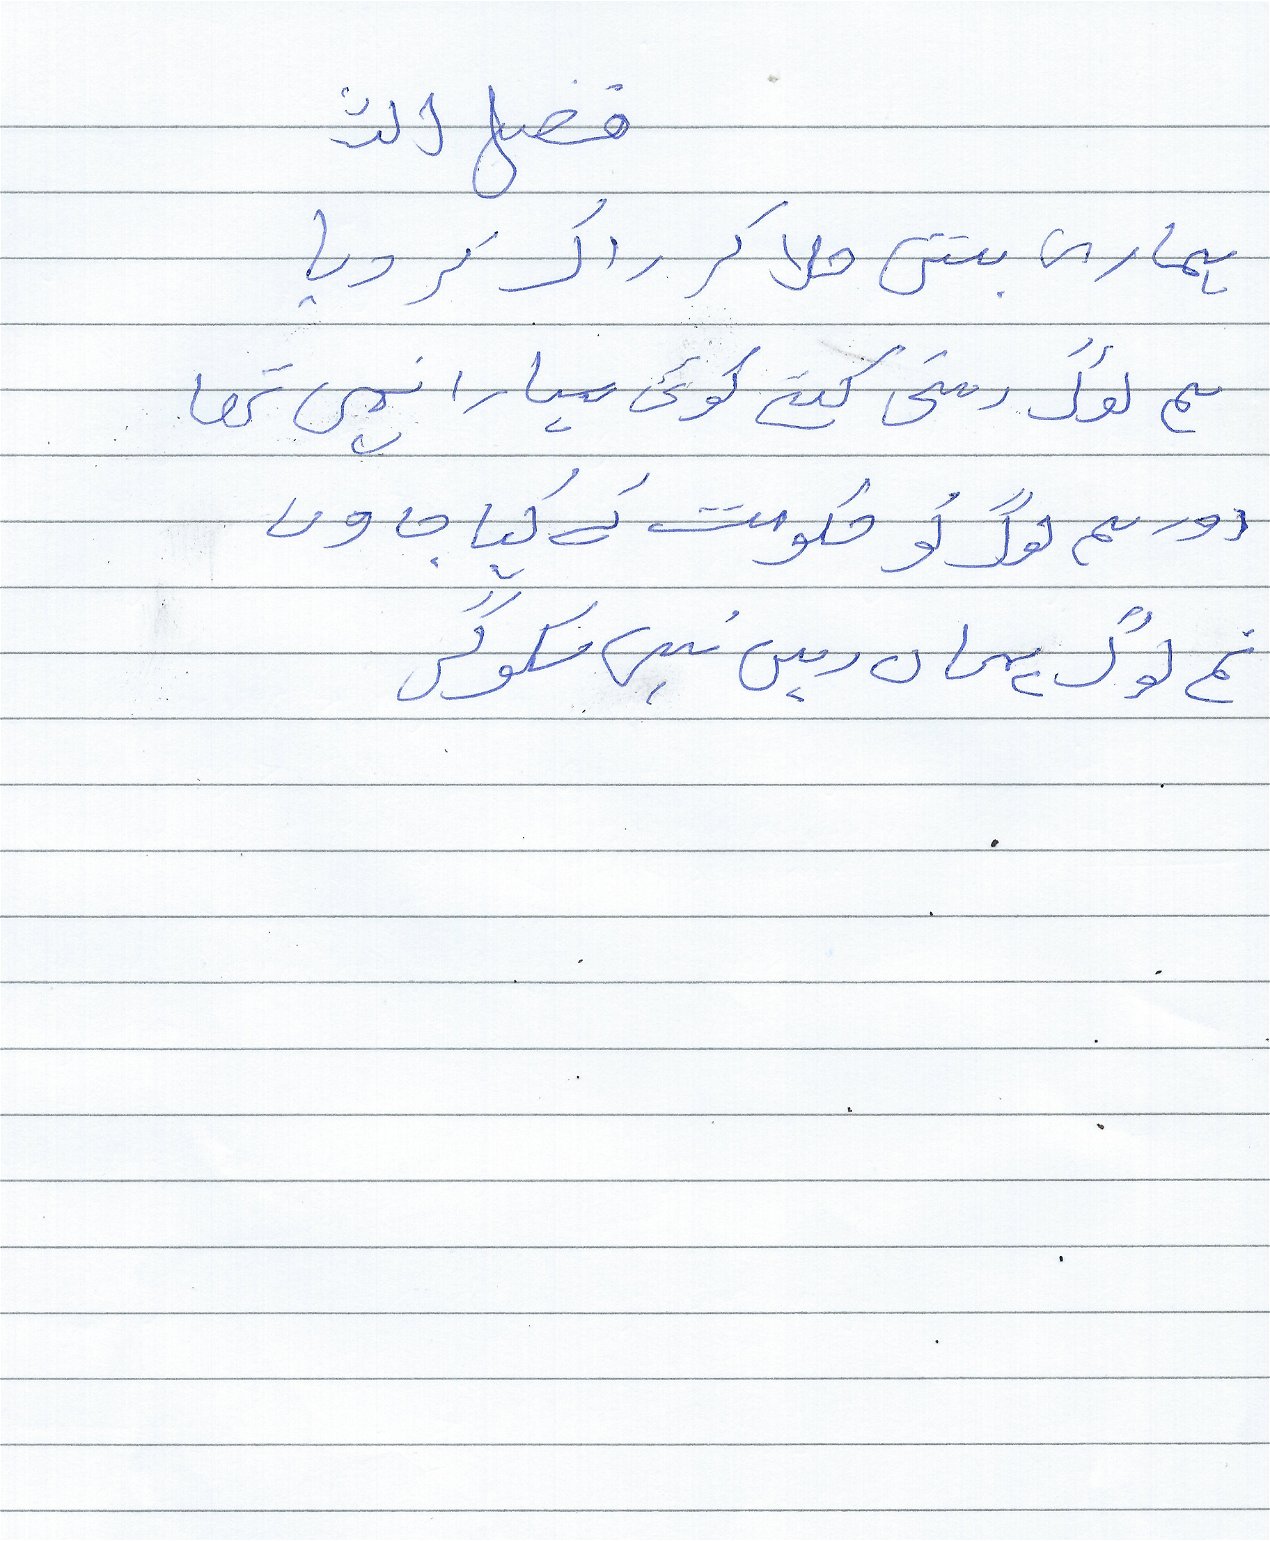 فضل الله
ہماری بستی جلا کر راک کر دیا
ہم لوگ کوئی سہارا نہیں تھا
اور ہم لوگ کو حکومت نے کہا جاوں
تم لوگ یہاں رہیں نہیں سکوگے